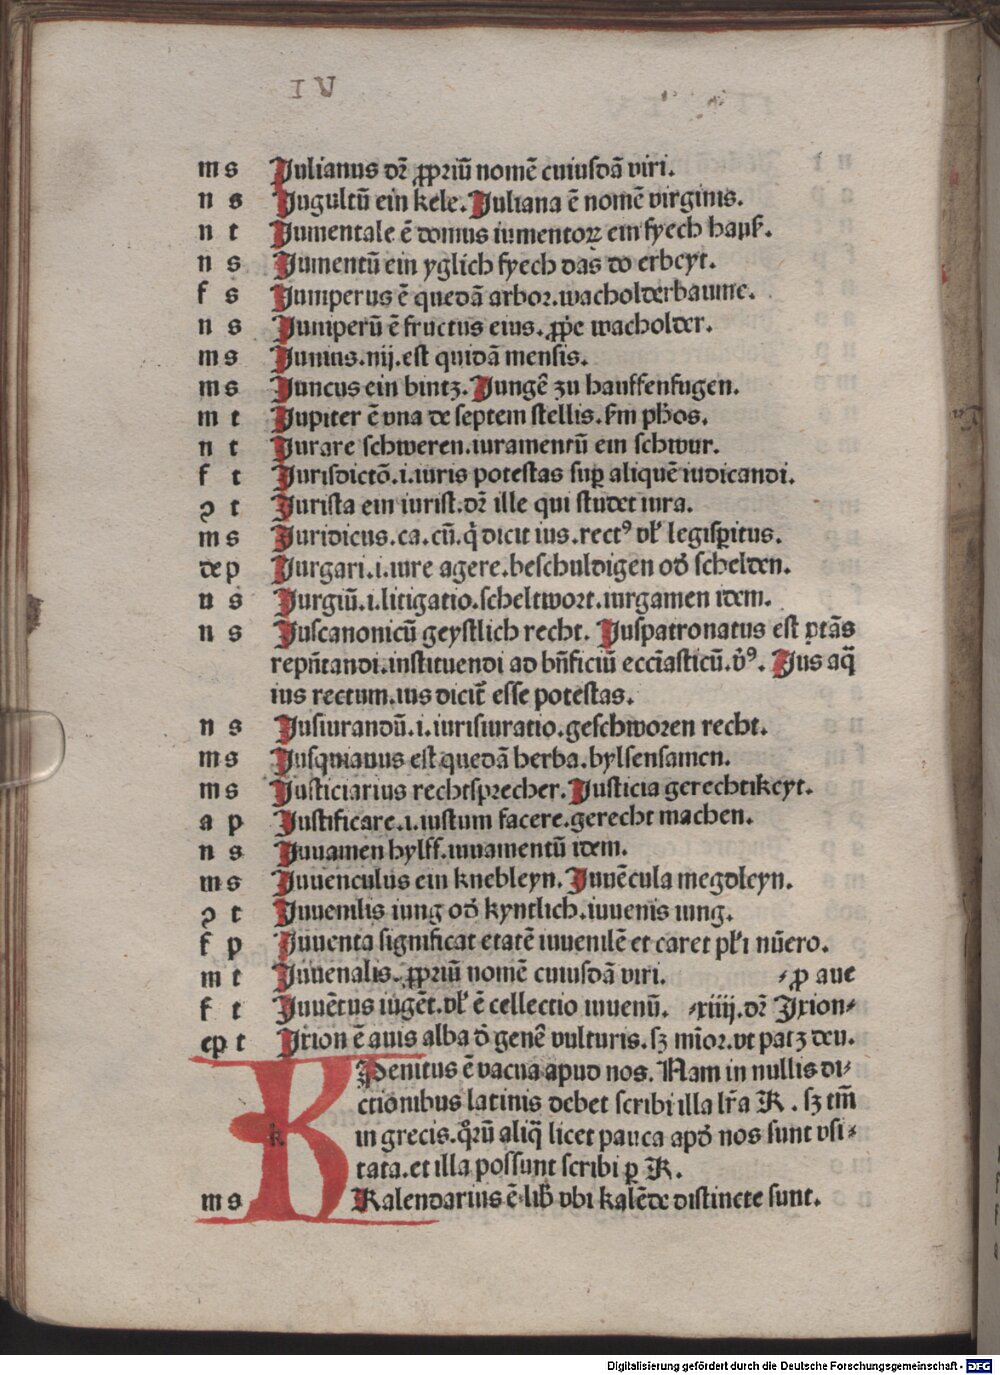 IV
m s Julianus dr̄ ꝓpriū nomē cuiusdā viri.
n s Jugultū ein kele. Juliana ē nomē virginis.
n t Jumentale ē domus iumentoꝝ ein fyech hauß.
n s Jumentū ein yglich fyech das do erbeyt.
f s Juniperus ē quedā arbor. wacholderbaume.
n s Juniperū ē fructus eius. ꝓpͥe wacholder.
m s Junius. nij. est quidā mensis.
m s Juncus ein bintz. Jungē zu hauffenfugen.
m t Jupiter ē vna de septem stellis. fm ph̄os.
n t Jurare schweren. iuramentū ein schwur.
f t Jurisdictō. i. iuris potestas suꝑ aliquē iudicandi.
ꝯ t Jurista ein iurist. dr̄ ille qui studet iura.
m s Juridicus. ca. cū. q̇ dicit ius. rectꝰ vl̕ legisꝑitus.
de p Jurgari. i. iure agere. beschuldigen od̕ schelden.
n s Jurgiū. i. litigatio. scheltwort. iurgamen idem.
n s Juscanonicū geystlich recht. Juspatronatus est ptās
repn̄tandi. instituendi ad bn̄ficiū eccīasticū. v̓ꝰ. Jus aq̄
ius rectum. ius dicit̄ esse potestas.
n s Jusiurandū. i. iurisiuratio. geschworen recht.
m s Jusqmanus est quedā herba. bylsensamen.
m s Justiciarius rechtsprecher. Justicia gerechtikeyt.
a p Justificare. i. iustum facere. gerecht machen.
n s Juuamen hylff. iuuamentū idem.
m s Juuenculus ein knebleyn. Juuēcula megdleyn.
ꝯ t Juuenilis iung od̕ kyntlich. iuuenis iung.
f p Juuenta significat etatē iuuenilē et caret pl̕i nūero.
m t Juuenalis. ꝓpriū nomē cuiusdā viri. ⸗ꝓ aue
f t Juuētus iugēt. vl̕ ē cellectio iuuenū. ⸗xiiij. dr̄ Jxion⸗
ep t Jxion ē auis alba d̕ genē vulturis. sꝫ mīor. vt patꝫ deu.
K Penitus ē vacua apud nos. Nam in nullis di⸗
ctionibus latinis debet scribi illa lr̄a K. sꝫ tm̄
in grecis. qr̄ū aliq̄ licet pauca apd̕ nos sunt vsi⸗
tata. et illa possunt scribi ꝑ K.
m s Kalendarius ē lib̕ vbi kalēde distincte sunt.
Digitalisierung gefördert durch die Deutsche Forschungsgemeinschaft - DFG